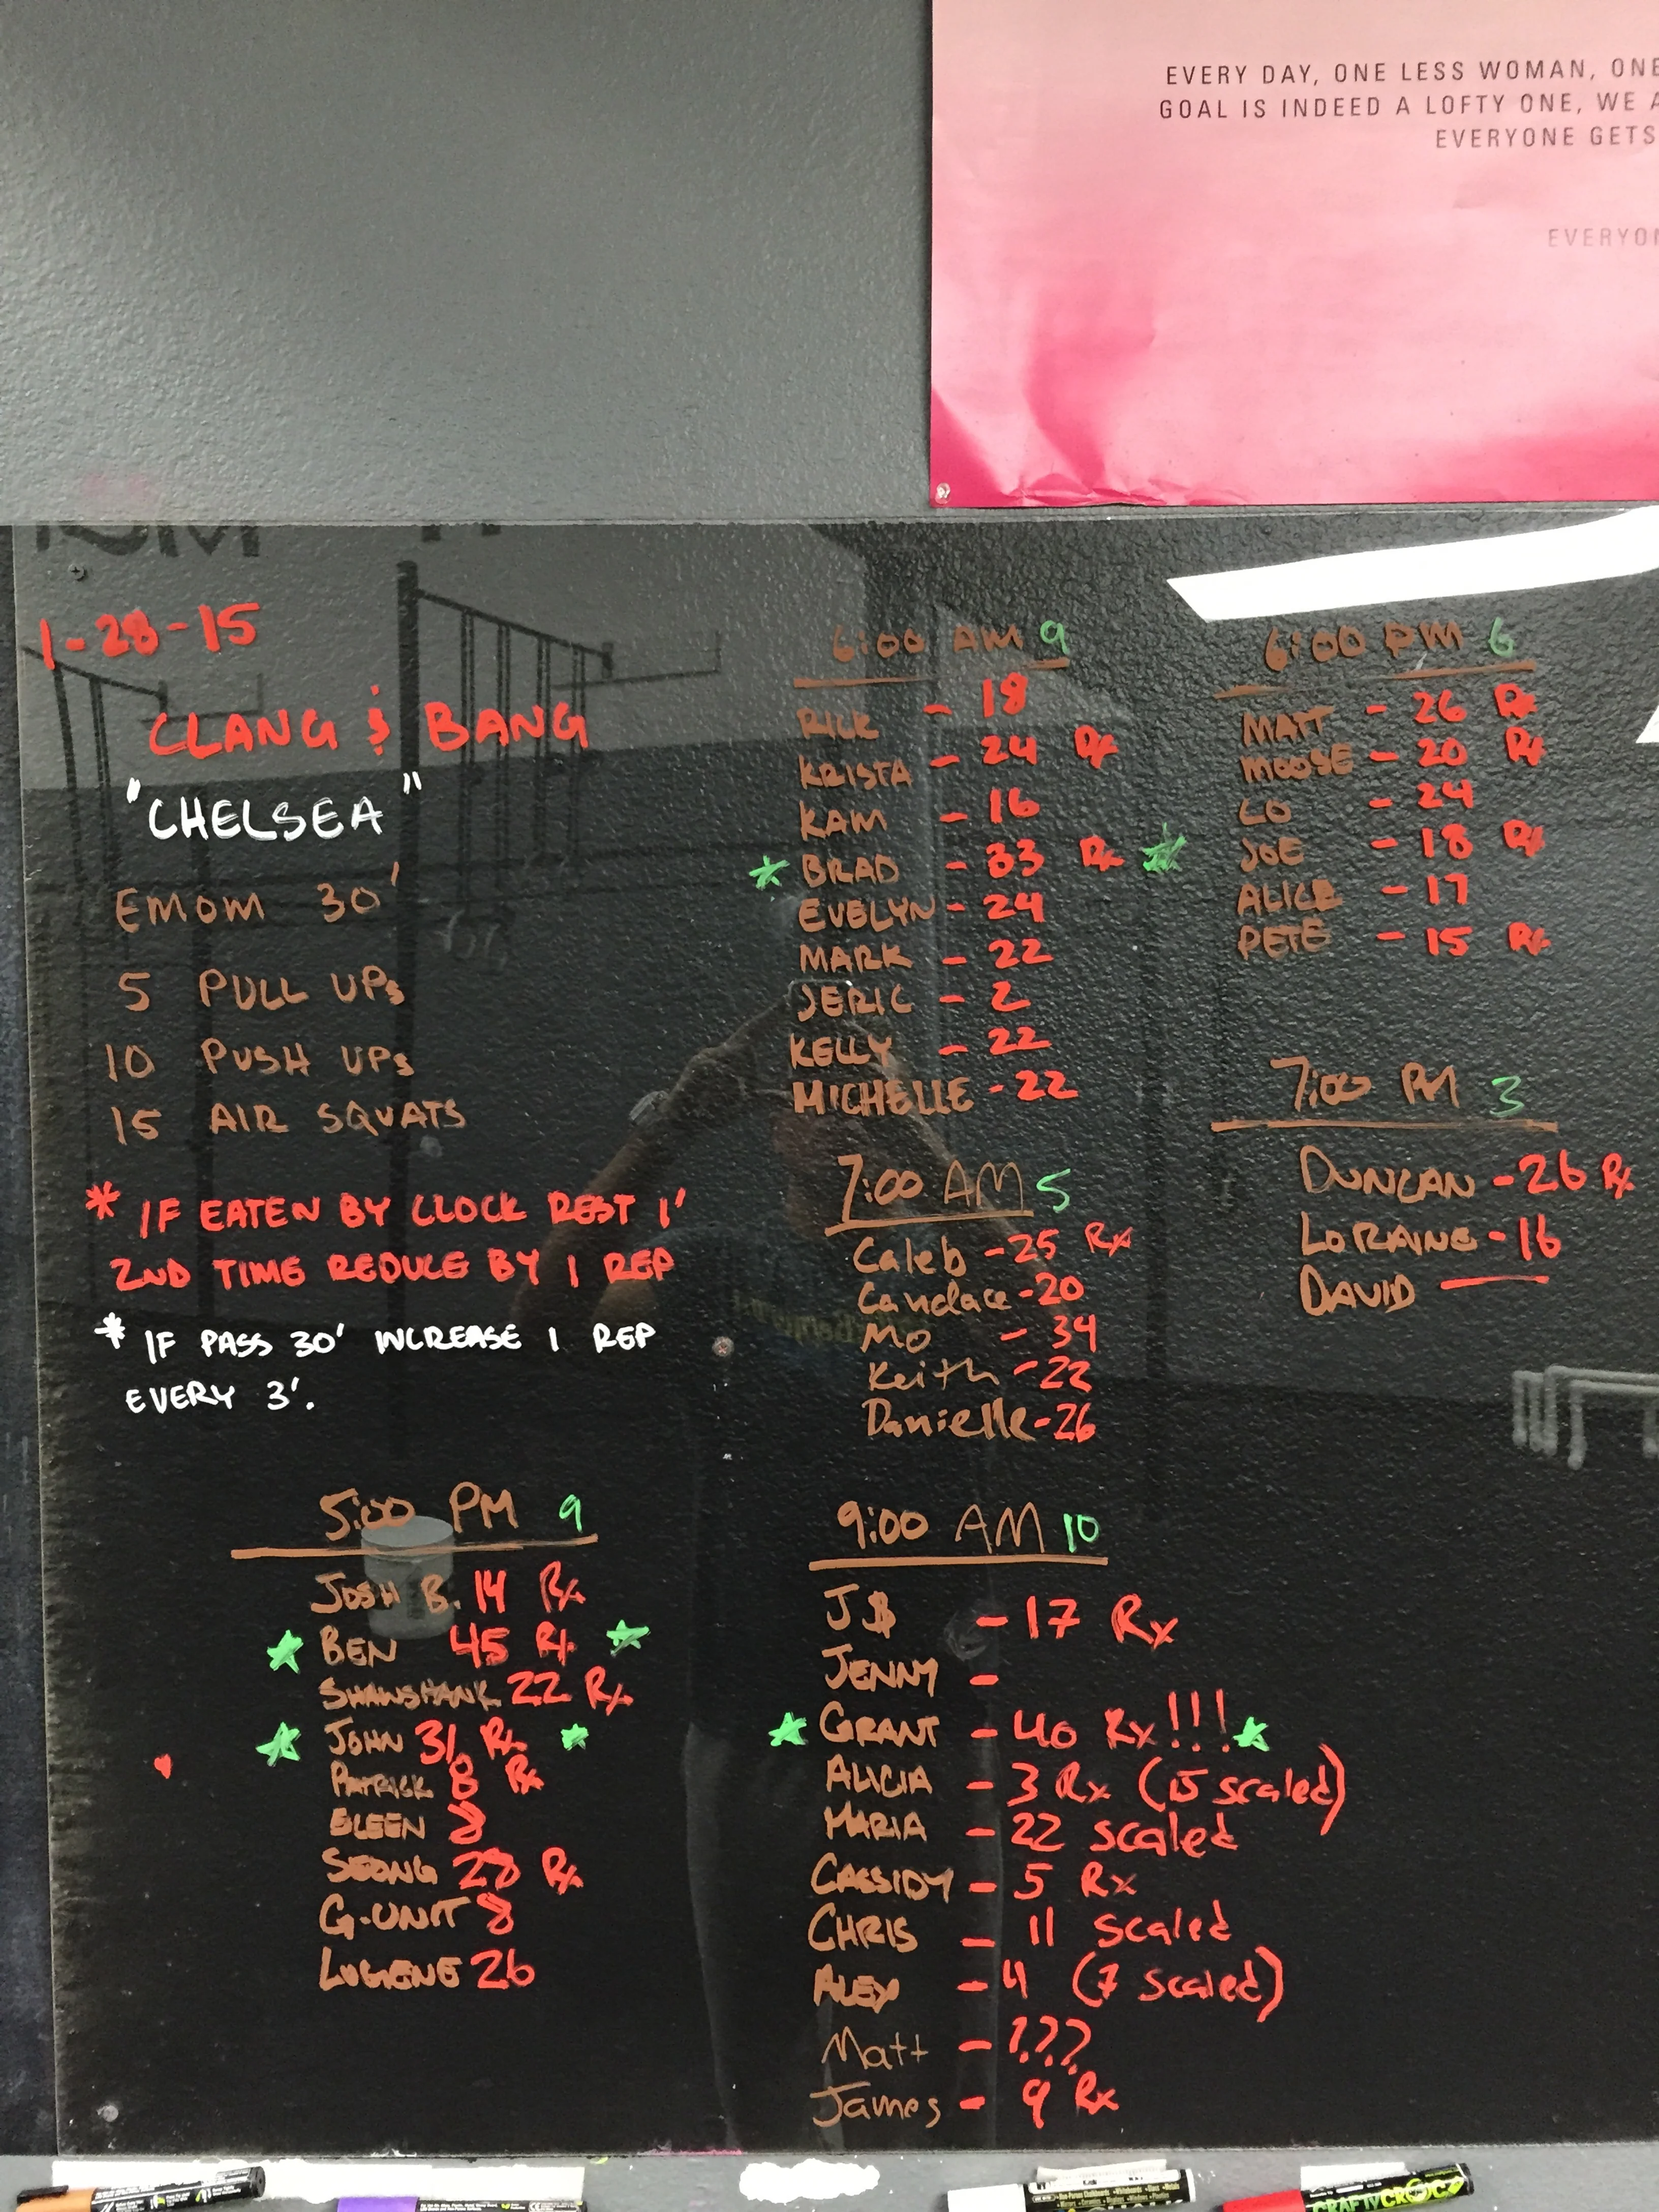 EVERY DAY, ONE LESS WOMAN, ONE
GOAL IS INDEED A LOFTY ONE, WE A
EVERYONE GETS
EVERYON
1-28-15
CLANG & BANG
"CHELSEA"
EMOM 30'
5 PULL UPs
10 PUSH UPs
15 AIR SQUATS
* IF EATEN BY CLOCK REST 1'
2ND TIME REDUCE BY 1 REP
* IF PASS 30' INCREASE 1 REP
EVERY 3'.
5:00 PM 9
JOSH B. 14 Rx
BEN 45 Rx
SHAWSHANK 22 Rx
JOHN 31 Rx
PATRICK 8 Rx
EILEEN 8
SEONG 28 Rx
G-UNIT 8
LUGIENE 26
6:00 AM 9
RICK - 18
KRISTA - 24 Rx
KAM - 16
* BRAD - 33 Rx
EVELYN - 24
MARK - 22
JERIC - 2
KELLY - 22
MICHELLE - 22
7:00 AM 5
Caleb - 25 Rx
Candace - 20
Mo - 34
Keith - 22
Danielle - 26
9:00 AM 10
J$ - 17 Rx
JENNY -
GRANT - 40 Rx!!!
ALICIA - 3 Rx (15 scaled)
MARIA - 22 scaled
CASSIDY - 5 Rx
CHRIS - 11 scaled
ALEX - 4 (7 scaled)
Matt - ???
James - 9 Rx
6:00 PM 6
MATT - 26 Rx
MOOSE - 20 Rx
LO - 24
JOE - 18 Rx
ALICE - 17
PETE - 15 Rx
7:00 PM 3
DUNCAN - 26 Rx
LORAINE - 16
DAVID —
CRAFTYCROC